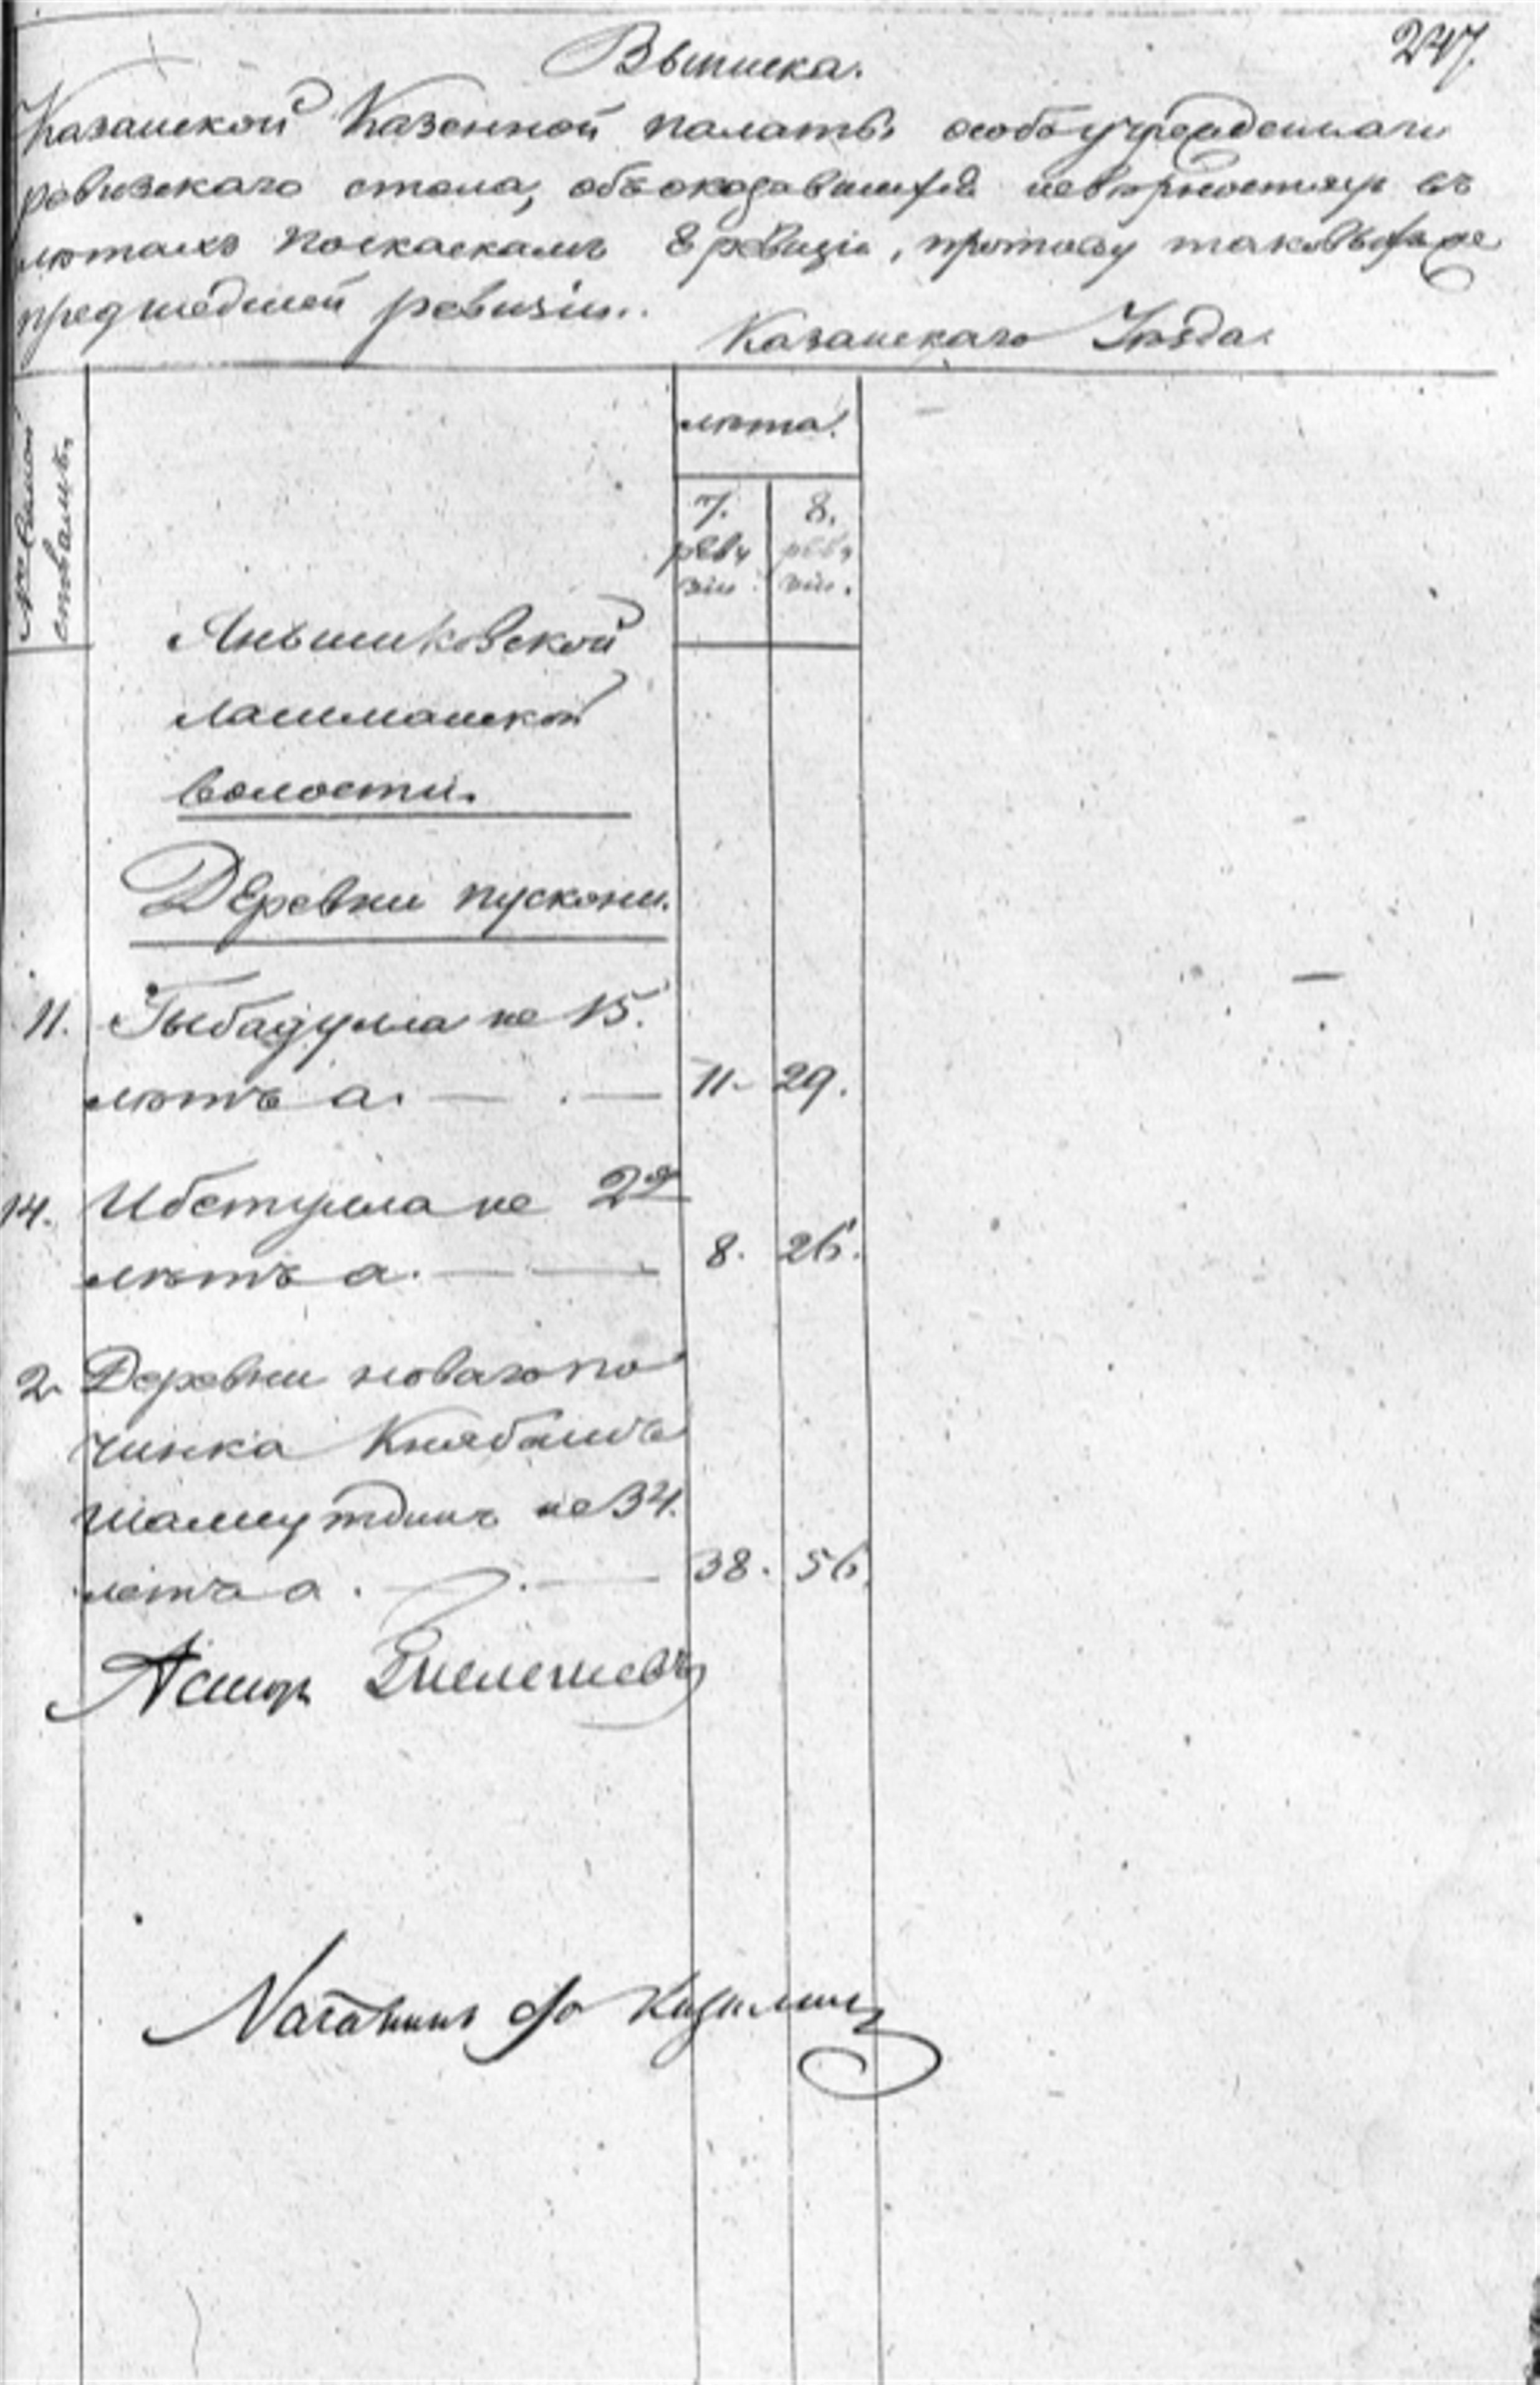 247.
Выписка.
Казанской Казенной палаты особоучрежденнаго
ревизскаго стола, объ оказавшихся неверностяхъ въ
летахъ по скаскамъ 8 ревизіи, противу таковыхъ же
предшедшей ревизіи.
Казанскаго Уезда.
лета.
7. реви
зіи.
8. реви
зіи.
Яньшиковской
лашманской
волости.
Деревни пускони.
11. Гыбадулла не 15.
летъ а. — . — 11. 29.
14. Ибетулла не
летъ а. — — 8. 26.
2. Деревни новаго по
чинка Князбашъ
Шамсутдинъ не 34.
летъ а. — . — 38. 56.